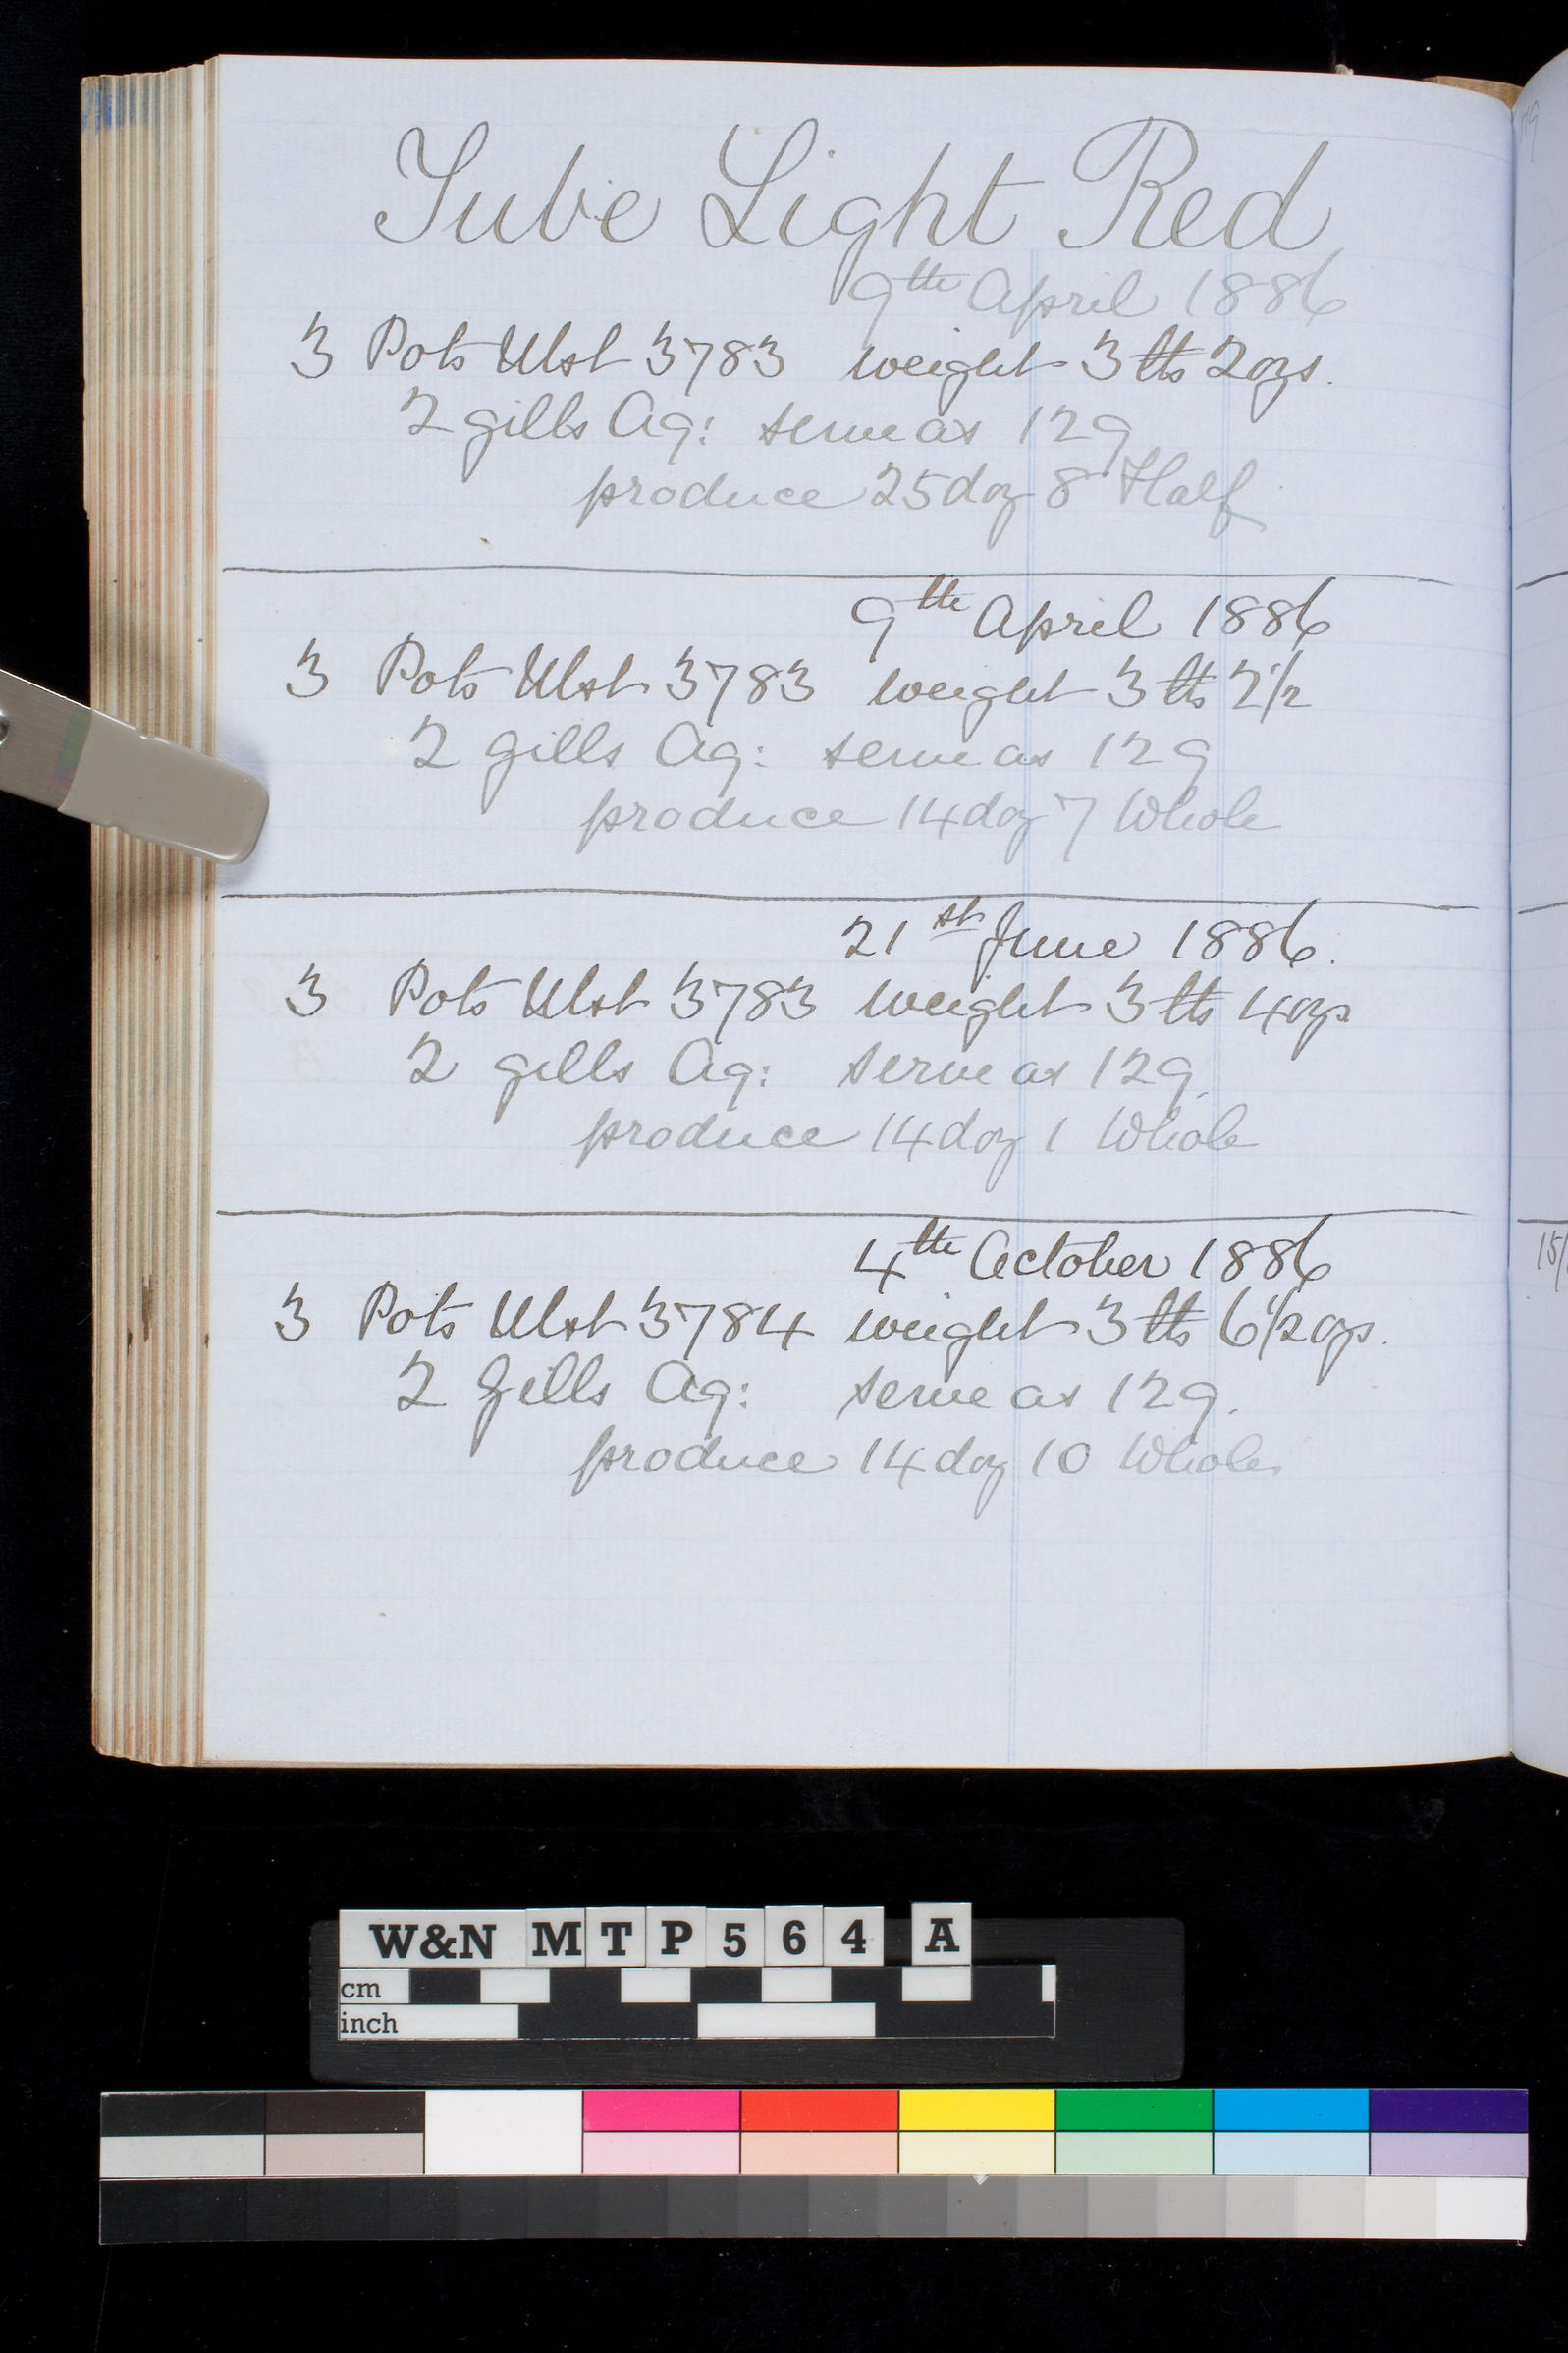 Tube Light Red
9th April 1886
3 Pots Ulst 3783 weight 3 lbs 2 ozs.
2 gills Aq: serve as 129
produce 25 doz 8 Half
9th April 1886
3 Pots Ulst 3783 weight 3 lbs 2 1/2
2 gills Aq: serve as 129
produce 14 doz 7 Whole
21st June 1886.
3 Pots Ulst 3783 weight 3 lbs 4 ozs
2 gills Aq: serve as 129.
produce 14 doz 1 Whole
4th October 1886
3 Pots Ulst 3784 weight 3 lbs 6 1/2 ozs.
2 gills Aq: serve as 129.
produce 14 doz 10 Whole
15/
W&N MTP564 A
cm
inch